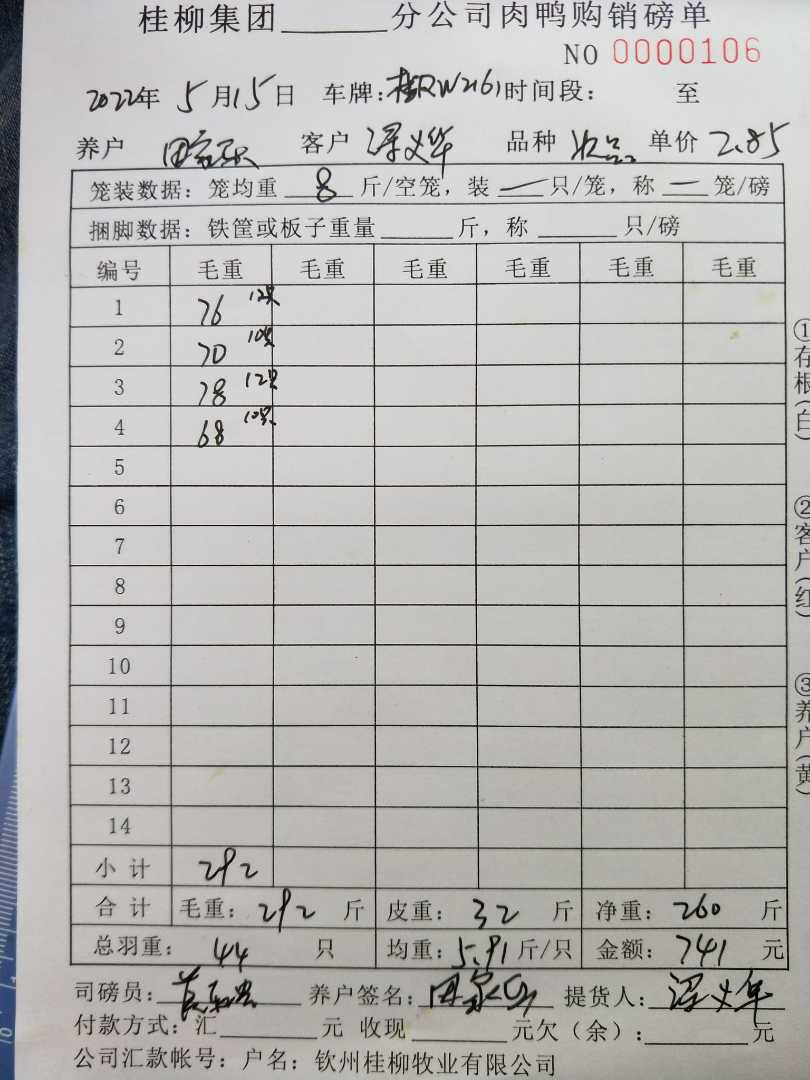 桂柳集团______分公司肉鸭购销磅单
NO 0000106
2022年 5月15日 车牌:桂RW2161时间段: 至
养户 客户 品种 次品 单价 2.85
笼装数据: 笼均重 8 斤/空笼, 装 一 只/笼, 称 一 笼/磅
捆脚数据: 铁筐或板子重量______斤, 称______只/磅
编号 毛重 毛重 毛重 毛重 毛重 毛重
1 76 12只
2 70 10只
3 78 12只
4 68 10只
5
6
7
8
9
10
11
12
13
14
小计 292
合计 毛重: 292 斤 皮重: 32 斤 净重: 260 斤
总羽重: 44 只 均重: 5.91 斤/只 金额: 741 元
司磅员: 养户签名: 提货人:
付款方式: 汇______元 收现______元欠(余):______元
公司汇款帐号: 户名: 钦州桂柳牧业有限公司
①存根(白) ②客户(红) ③养户(黄)